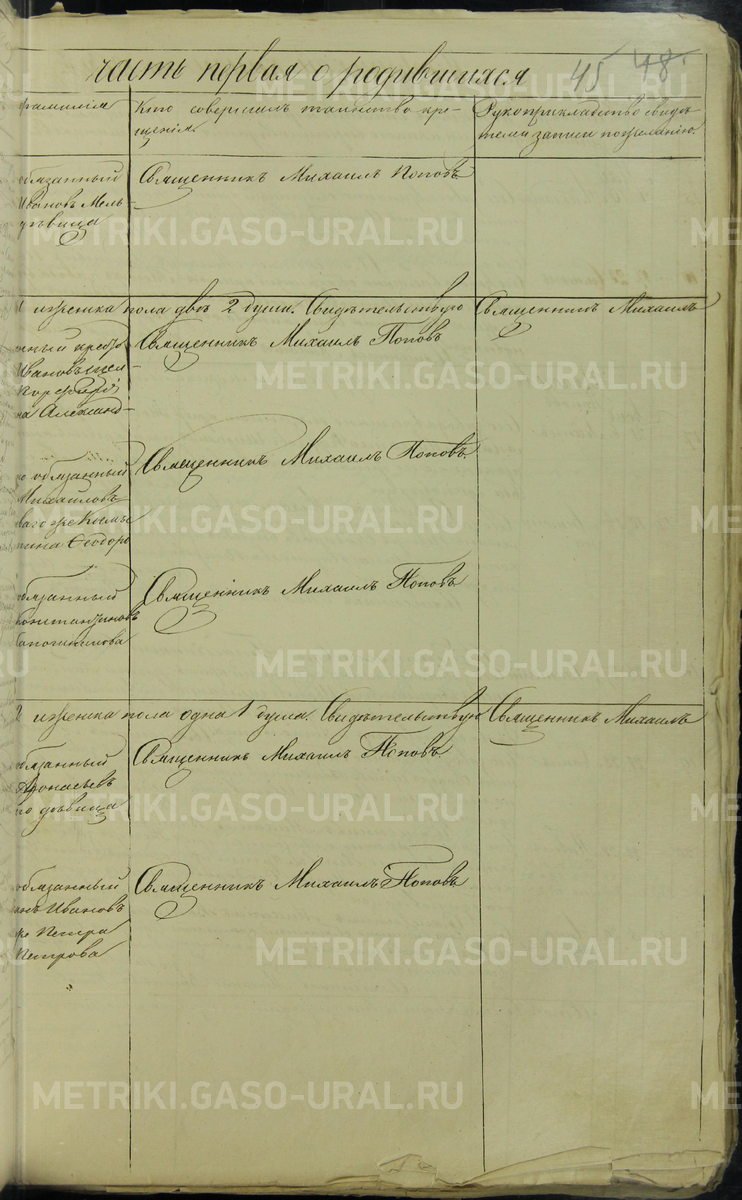 часть первая о родившихся
45 48
фамилія
Кто совершалъ таинство кре-
щенія.
Рукоприкладство свидѣ-
телей записи по желанію.
обязанный
Ивановъ Мель-
дѣвица
Священникъ Михаилъ Поповъ
и женска пола двѣ 2 души. Свидѣтельствую Священникъ Михаилъ
Ивановъ
на Александ-
Священникъ Михаилъ Поповъ
обязанный
Михайловъ
Ѳеодоро
Священникъ Михаилъ Поповъ.
обязанный
Константиновъ
Священникъ Михаилъ Поповъ
2 женска пола одна 1 душа. Свидѣтельствую Священникъ Михаилъ
обязанный
Афонасьевъ
дѣвица
Священникъ Михаилъ Поповъ
обязанный
Ивановъ
же Петра
Петрова
Священникъ Михаилъ Поповъ
METRIKI.GASO-URAL.RU